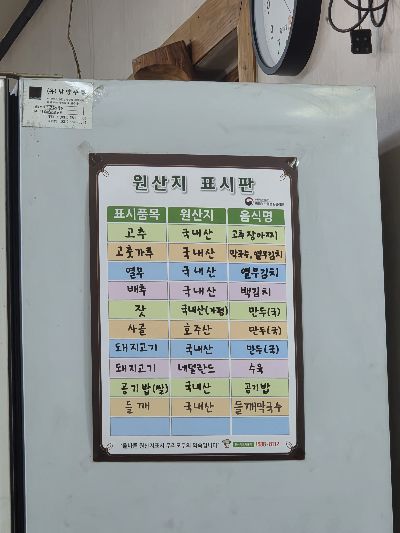 원산지 표시판
표시품목 원산지 음식명
고추 국내산 고추장아찌
고춧가루 국내산 막국수, 열무김치
열무 국내산 열무김치
배추 국내산 백김치
잣 국내산(가평) 만두(국)
사골 호주산 만두(국)
돼지고기 국내산 만두(국)
돼지고기 네덜란드 수육
공기밥(쌀) 국내산 공기밥
들깨 국내산 들깨막국수
"올바른 원산지표시 우리 모두의 약속입니다" 1588-8112